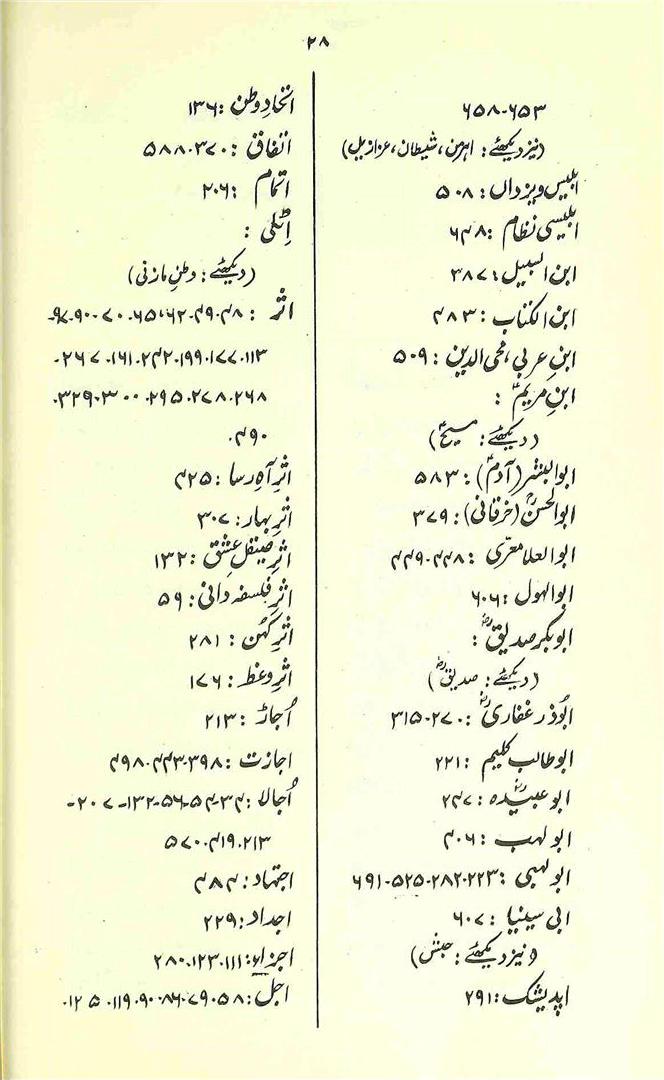 ۲۸
۶۵۳-۶۵۸
(نیز دیکھئے: اہرمن، شیطان، عزازیل)
ابلیس ویزداں: ۵۰۸
ابلیسی نظام: ۶۴۸
ابن السبیل: ۳۸۷
ابن الکتاب: ۴۸۳
ابنِ عربی، محی الدین: ۵۰۹
ابنِ مریمؑ:
(دیکھئے: مسیحؑ)
ابوالبشر (آدمؑ): ۵۸۳
ابوالحسنؒ (خرقانی): ۳۷۹
ابوالعلا معری: ۴۴۸-۴۴۹
ابوالہول: ۶۰۶
ابوبکر صدیقؓ:
(دیکھئے: صدیقؓ)
ابُوذر غفاریؓ: ۲۷۰-۳۱۵
ابوطالب کلیم: ۲۲۱
ابو عبیدہؓ: ۲۴۷
ابو لہب: ۴۰۶
ابو لہبی: ۲۲۳-۲۸۲-۵۲۵-۶۹۱
ابی سینیا: ۶۰۷
(نیز دیکھئے: حبش)
اپدیشک: ۲۹۱
اتحادِ وطن: ۱۳۶
اتفاق: ۳۷۰-۵۸۸
اتمام: ۲۰۶
اٹلی:
(دیکھئے: وطنِ مازنی)
اثر: ۴۸-۴۹-۶۲-۶۵-۷۰-۹۰-۹۷-
۱۱۳-۱۷۷-۱۹۹-۲۴۲-۱۶۱-۲۶۷-
۲۶۸-۲۷۸-۲۹۵-۳۰۰-۳۲۹-
۴۹۰-
اثرِ آہِ رسا: ۴۲۵
اثرِ بہار: ۳۰۷
اثرِ صیقلِ عشق: ۱۳۲
اثرِ فلسفہ دانی: ۵۹
اثرِ کہن: ۲۸۱
اثرِ وعظ: ۱۷۶
اُجاڑ: ۲۱۳
اجازت: ۳۹۸-۴۴۳-۴۹۸
اُجالا: ۳۴-۵۴-۵۶-۱۳۲-۲۰۷-
۲۱۳-۴۱۹-۵۷۰
اجتہاد: ۴۸۴
اجداد: ۲۲۹
اجزاء: ۱۱۱-۱۲۳-۲۸۰
اجل: ۵۸-۷۹-۸۶-۹۰-۱۱۹-۱۲۵-